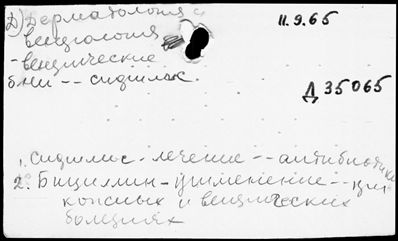 Д) Дерматология с
венерология
-венерические
б-ни -- сифилис.
11.9.65
Д 35065
1. Сифилис - лечение -- антибиотики
2. Бициллин - применение -- при
кожных и венерических
болезнях